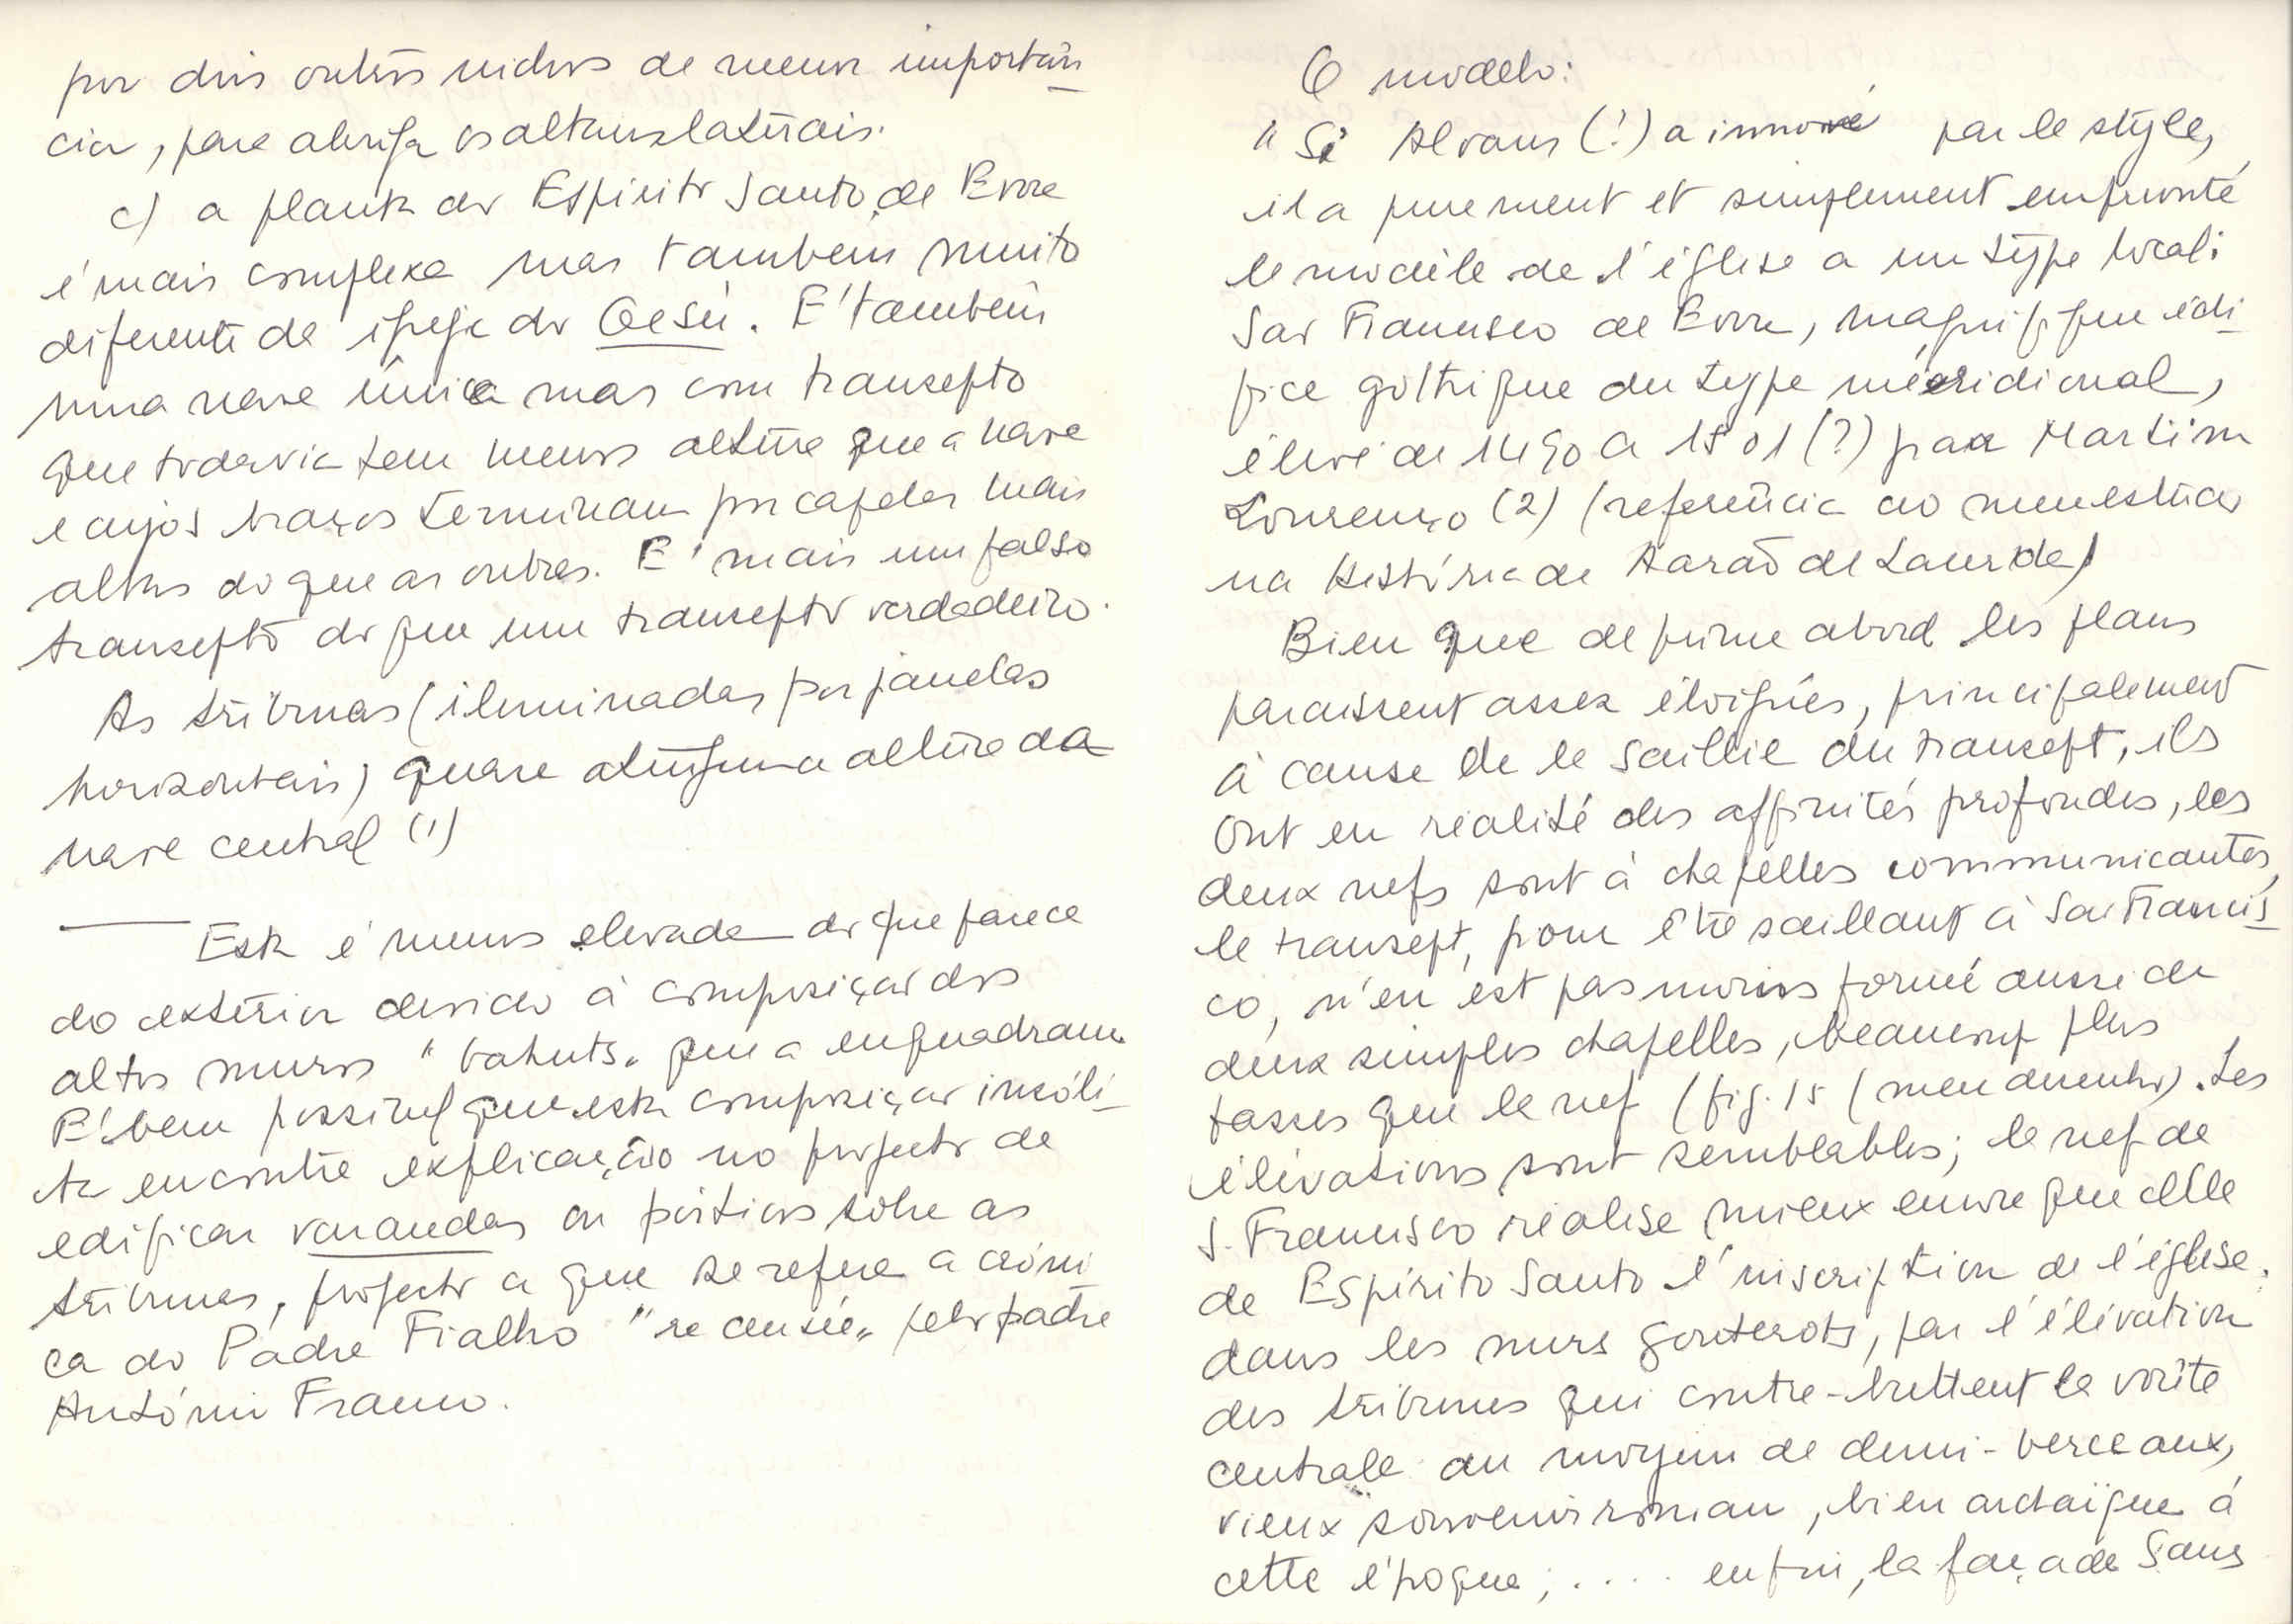 por dois outros nichos de menor importân
cia, para abrigar os altares laterais.
c) a planta do Espirito Santo, de Evora
é mais complexa mas tambem muito
diferente da igreja do Gesù. É também
uma nave única mas com transepto
que todavia tem menos altura que a nave
e cujos braços terminam por capelas mais
altas do que as outras. É mais um falso
transepto do que um transepto verdadeiro.
As tribunas (iluminadas por janelas
horizontais) quase atingem a altura da
nave central (1)
Esta é menos elevada do que parece
do exterior devido à composição dos
altos muros "bahuts" que a enquadram.
É bem possivel que esta composição insóli-
ta encontre explicação no projecto de
edificar varandas ou pórticos sobre as
tribunas, projecto a que se refere a cróni
ca do Padre Fialho "recensée" pelo padre
António Franco.
O modelo:
"Si Alvares (!) a innové par le style,
il a purement et simplement emprunté
le modèle de l'église a un type local:
Sao Francisco de Evora, magnifique édi-
fice gothique du type méridional,
élevé de 1490 a 1501 (?) par Martim
Lourenço (2) (referência ao menestúa
na História de Aarão de Lacerda)
Bien que de prime abord les plans
paraissent assez éloignés, principalement
à cause de la saillie du transept, ils
ont en réalité des affinités profondes, les
deux nefs sont à chapelles communicantes,
le transept, pour être saillant à Sao Francis-
co, n'en est pas moins formé aussi de
deux simples chapelles, beaucoup plus
basses que la nef (fig. 15 (meu desenho). Les
élévations sont semblables; la nef de
S. Francisco réalise mieux encore que celle
de Espírito Santo l'inscription de l'église
dans les murs gouterots, par l'élévation
des tribunes qui contre-buttent la voûte
centrale au moyen de demi-berceaux,
vieux souvenir roman, bien archaïque à
cette époque; .... enfin, la façade sans